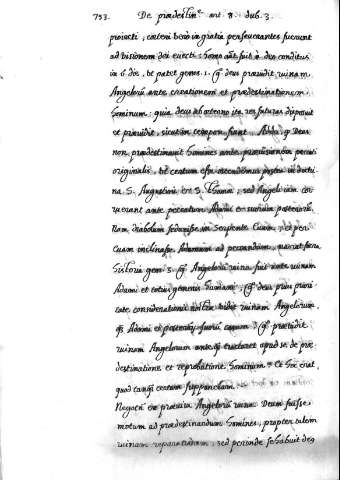 753. De prædestin.e art. 8. dub. 3
proiecti, cæteri vero in gratia perseverantes fuerunt
ad visionem dei evecti: homo aūt fuit a deo conditus
in 6 die, ut patet genes. 1. q deus prævidit ruinam
Angelorū ante creationem et prædestinationem
hominum: quia deus ab æterno ita res futuras disposuit
et prævidit, sicut in tempore fiunt. Adde, q Deus
non prædestinavit homines ante prævisionem peccati
originalis, ut centum ostendimus postea in doctri
na S. Augustini et S. Thomæ; sed Angeli iam cor
ruerant ante peccatum Adami et suorum posterorū.
Nam diabolum sedmisse in serpente Evam, et per
Evam inclinasse Adamum ad peccandum, narrat sacra
historia gen. 3. q Angelorū ruina fuit ante ruinam
Adami et totius generis humani; q deus prius priori
tate considerationis vidit ruinam Angelorum,
q Adami et posterorū suorum q prævidit
ruinam Angelorum antequā tractaret apud se de præ
destinatione et reprobatione hominum. Et hoc erat,
quod tanq certum supponebam.
Negocū ex prævisa Angelorū ruina Deum fuisse
motum ad prædestinandum homines, propter talem
ruinam reparandam; sed perinde se habuit deq